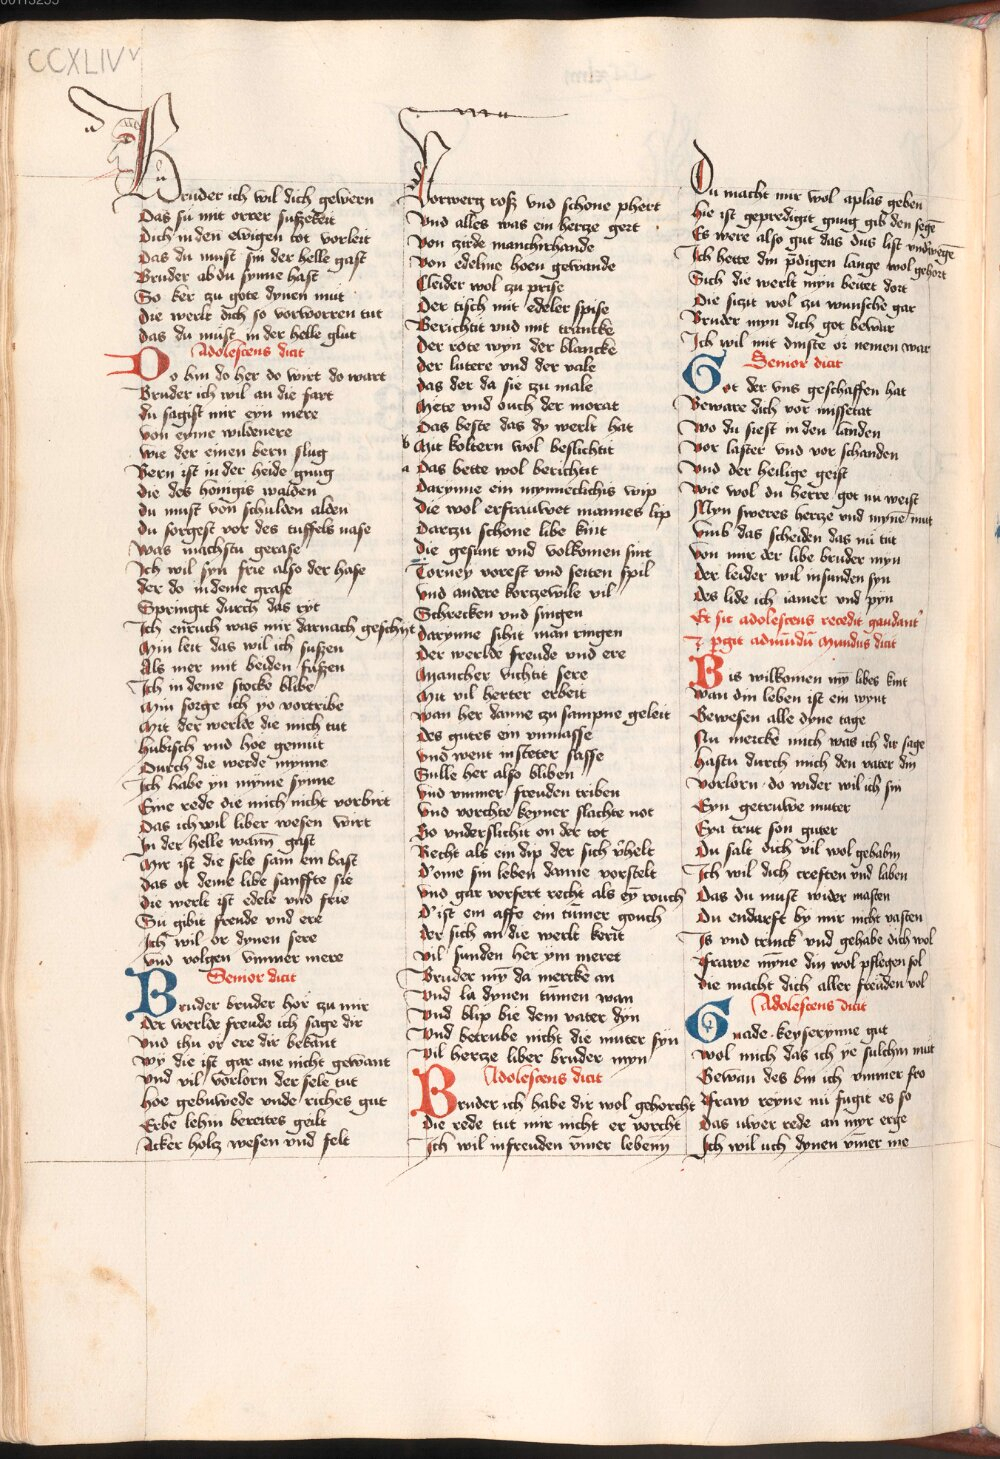 CCXLIV v
Bruder ich wil dich gewern
Das su mit orrer sußekeit
Dich in den ewigen tot vorleit
Das du must sin der helle gast
Bruder ab du synne hast
So ker zu gote dynen mut
Die werlt dich so vorworren tut
Das du must in der helle glut
Adolescens dicit
Do bin do her do wirt do wart
Bruder ich wil an die fart
Du sagist mir eyn mere
Von eyme wildenere
Wie der einen bern slug
Bern ist in der heide gnug
Die des honigis walden
Du must von schulden alden
Du sorgest vor des tuffels nase
Was machstu gerase
Ich wil syn frie also der hase
Der do in deme grase
Springit durch das ryt
Ich enruch was mir darnach geschyt
Min leit das wil ich sußen
Als mer mit beiden fußen
Ich in deme stocke blibe
Min sorge ich yo vortribe
Mit der werlde die mich tut
Hubisch vnd hoe gemut
Durch die werde mynne
Ich habe yn myme synne
Eine rede die mich nicht vorbirt
Das ich wil liber wesen wirt
In der helle wann gast
Mir ist die sele sam ein bast
Das ot deme libe sanffte sie
Die werlt ist edele vnd frie
Su gibit freude vnd ere
Ich wil or dynen sere
Vnd volgen vmmer mere
Senior dicit
Bruder bruder hor zu mir
Der werlde freude ich sage dir
Vnd thu or ere dir bekant
Wy die ist gar ane nicht gewant
Vnd vil vorlorn der sele tut
Hoe gebuwede vnde riches gut
Erbe lehin bereites geilt
Acker holz wesen vnd felt
Vorwerg roß vnd schone phert
Vnd alles was ein hertze gert
Von zirde manchirhande
Von edelme hoen gewande
Cleider wol zu prise
Der tisch mit edeler spise
Berichtit vnd mit trancke
Der rote wyn der blancke
Der lutere vnd der vale
Das der da sie zu male
Mete vnd ouch der morat
Das beste das dy werlt hat
b Mit koltern wol beslichtit
a Das bette wol berichtit
Darynne ein mynneclichis wip
Die wol erfrauwet mannes lip
Dartzu schone libe kint
Die gesunt vnd volkomen sint
Torney vorest vnd seiten spil
Vnd andere kortzewile vil
Schrecken vnd singen
Darynne sihit man ringen
Der werlde freude vnd ere
Mancher vichtit sere
Mit vil herter erbeit
Wan her danne zu sampne geleit
Des gutes ein vnmasse
Vnd went in steter sasse
Sulle her also bliben
Vnd vmmer freuden triben
Vnd vorchte keyner slachte not
So vnderslichit on der tot
Recht als ein dip der sich v̄helt
D'ome sin leben danne vorstelt
Vnd gar vorsert recht als ey̅ rouch
D'ist ein affe ein tu̅mer gouch
Der sich an die werlt kerit
Vil sunden her ym meret
Bruder my̅ da mercke an
Vnd la dynen tu̅men wan
Vnd blip bie dem vater dyn
Vnd betrube nicht die muter syn
Vil hertze liber bruder myn
Adolescens dicit
Bruder ich habe dir wol gehorcht
Die rede tut mir nicht er vorcht
Ich wil in freuden v̅mer lebenn
Du macht mir wol aplas geben
Hie ist gepredigit gnug gib den sege̅
Es were also gut das dus list vnd wege̅
Ich hette din p̄digen lange wol gehort
Sich die werlt myn beitet dort
Die sizit wol zu wunsche gar
Bruder myn dich got bewar
Ich wil mit dinste or nemen war
Senior dicit
Got der vns geschaffen hat
Beware dich vor missetat
Wo du siest in den landen
Vor laster vnd vor schanden
Vnd der heilige geist
Wie wol du herre got nu weist
Myn sweres hertze vnd myne mut
Vmb das scheiden das nu tut
Von mir der libe bruder myn
Der leider wil in sunden syn
Des lide ich iamer vnd pyn
Et sic adolescens recedit gaudant'
Bis wilkomen my libes kint
Wan din leben ist ein wynt
Gewesen alle dyne tage
Nu mercke mich was ich dir sage
Hastu durch mich den vater din
Vorlorn · do wider wil ich sin
Eyn getruwe muter
Eya trut son guter
Du salt dich vil wol gehabin
Ich wil dich creften vnd laben
Das du must wider masten
Du endarft by mir nicht vasten
Is vnd trinck vnd gehabe dich wol
Frawe my̅ne din wol pflegen sol
Die macht dich aller freuden vol
Adolescens dicit
Gnade · keyserynne gut
Wol mich das ich ye sulchin mut
Gewan des bin ich vmmer fro
Fraw reyne nu fugit es so
Das uwer rede an myr erge
Ich wil uch dynen v̅mer me